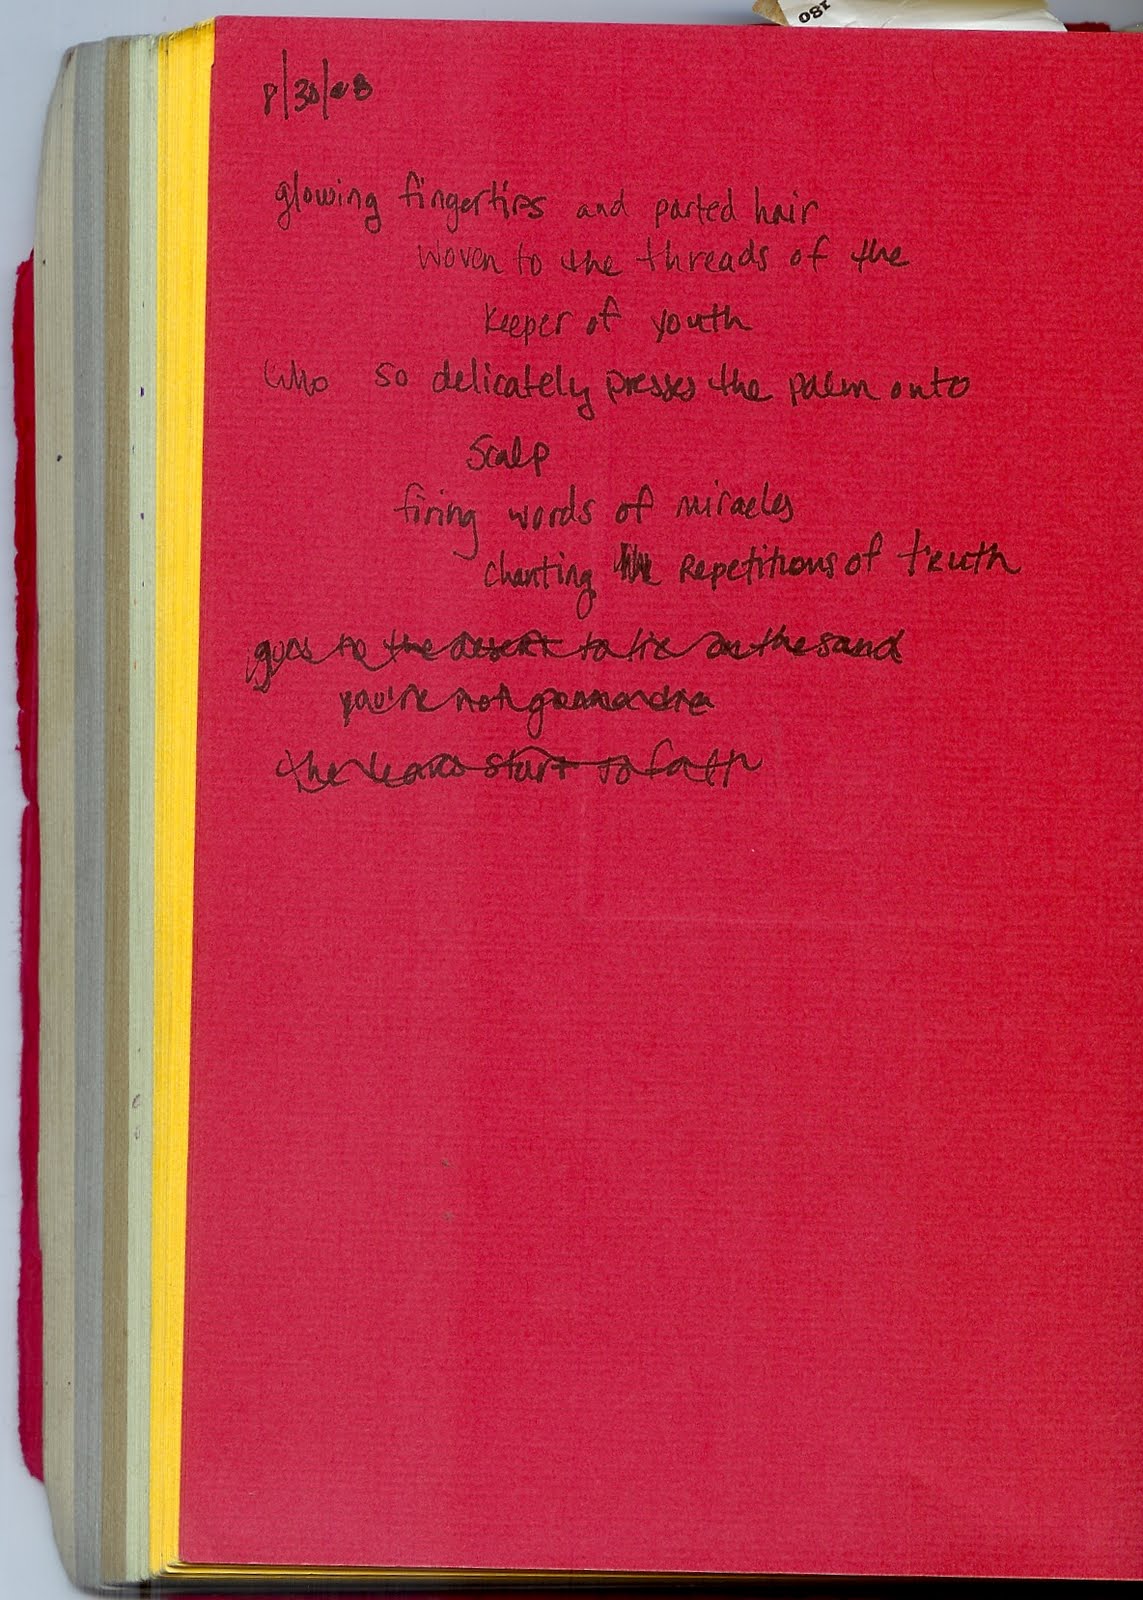 180
8/30/08
glowing fingertips and parted hair
woven to the threads of the
keeper of youth
who so delicately presses the palm onto
scalp
firing words of miracles
chanting repetitions of truth
goes to the desert to lie on the sand
you're not
the leaves start to fall